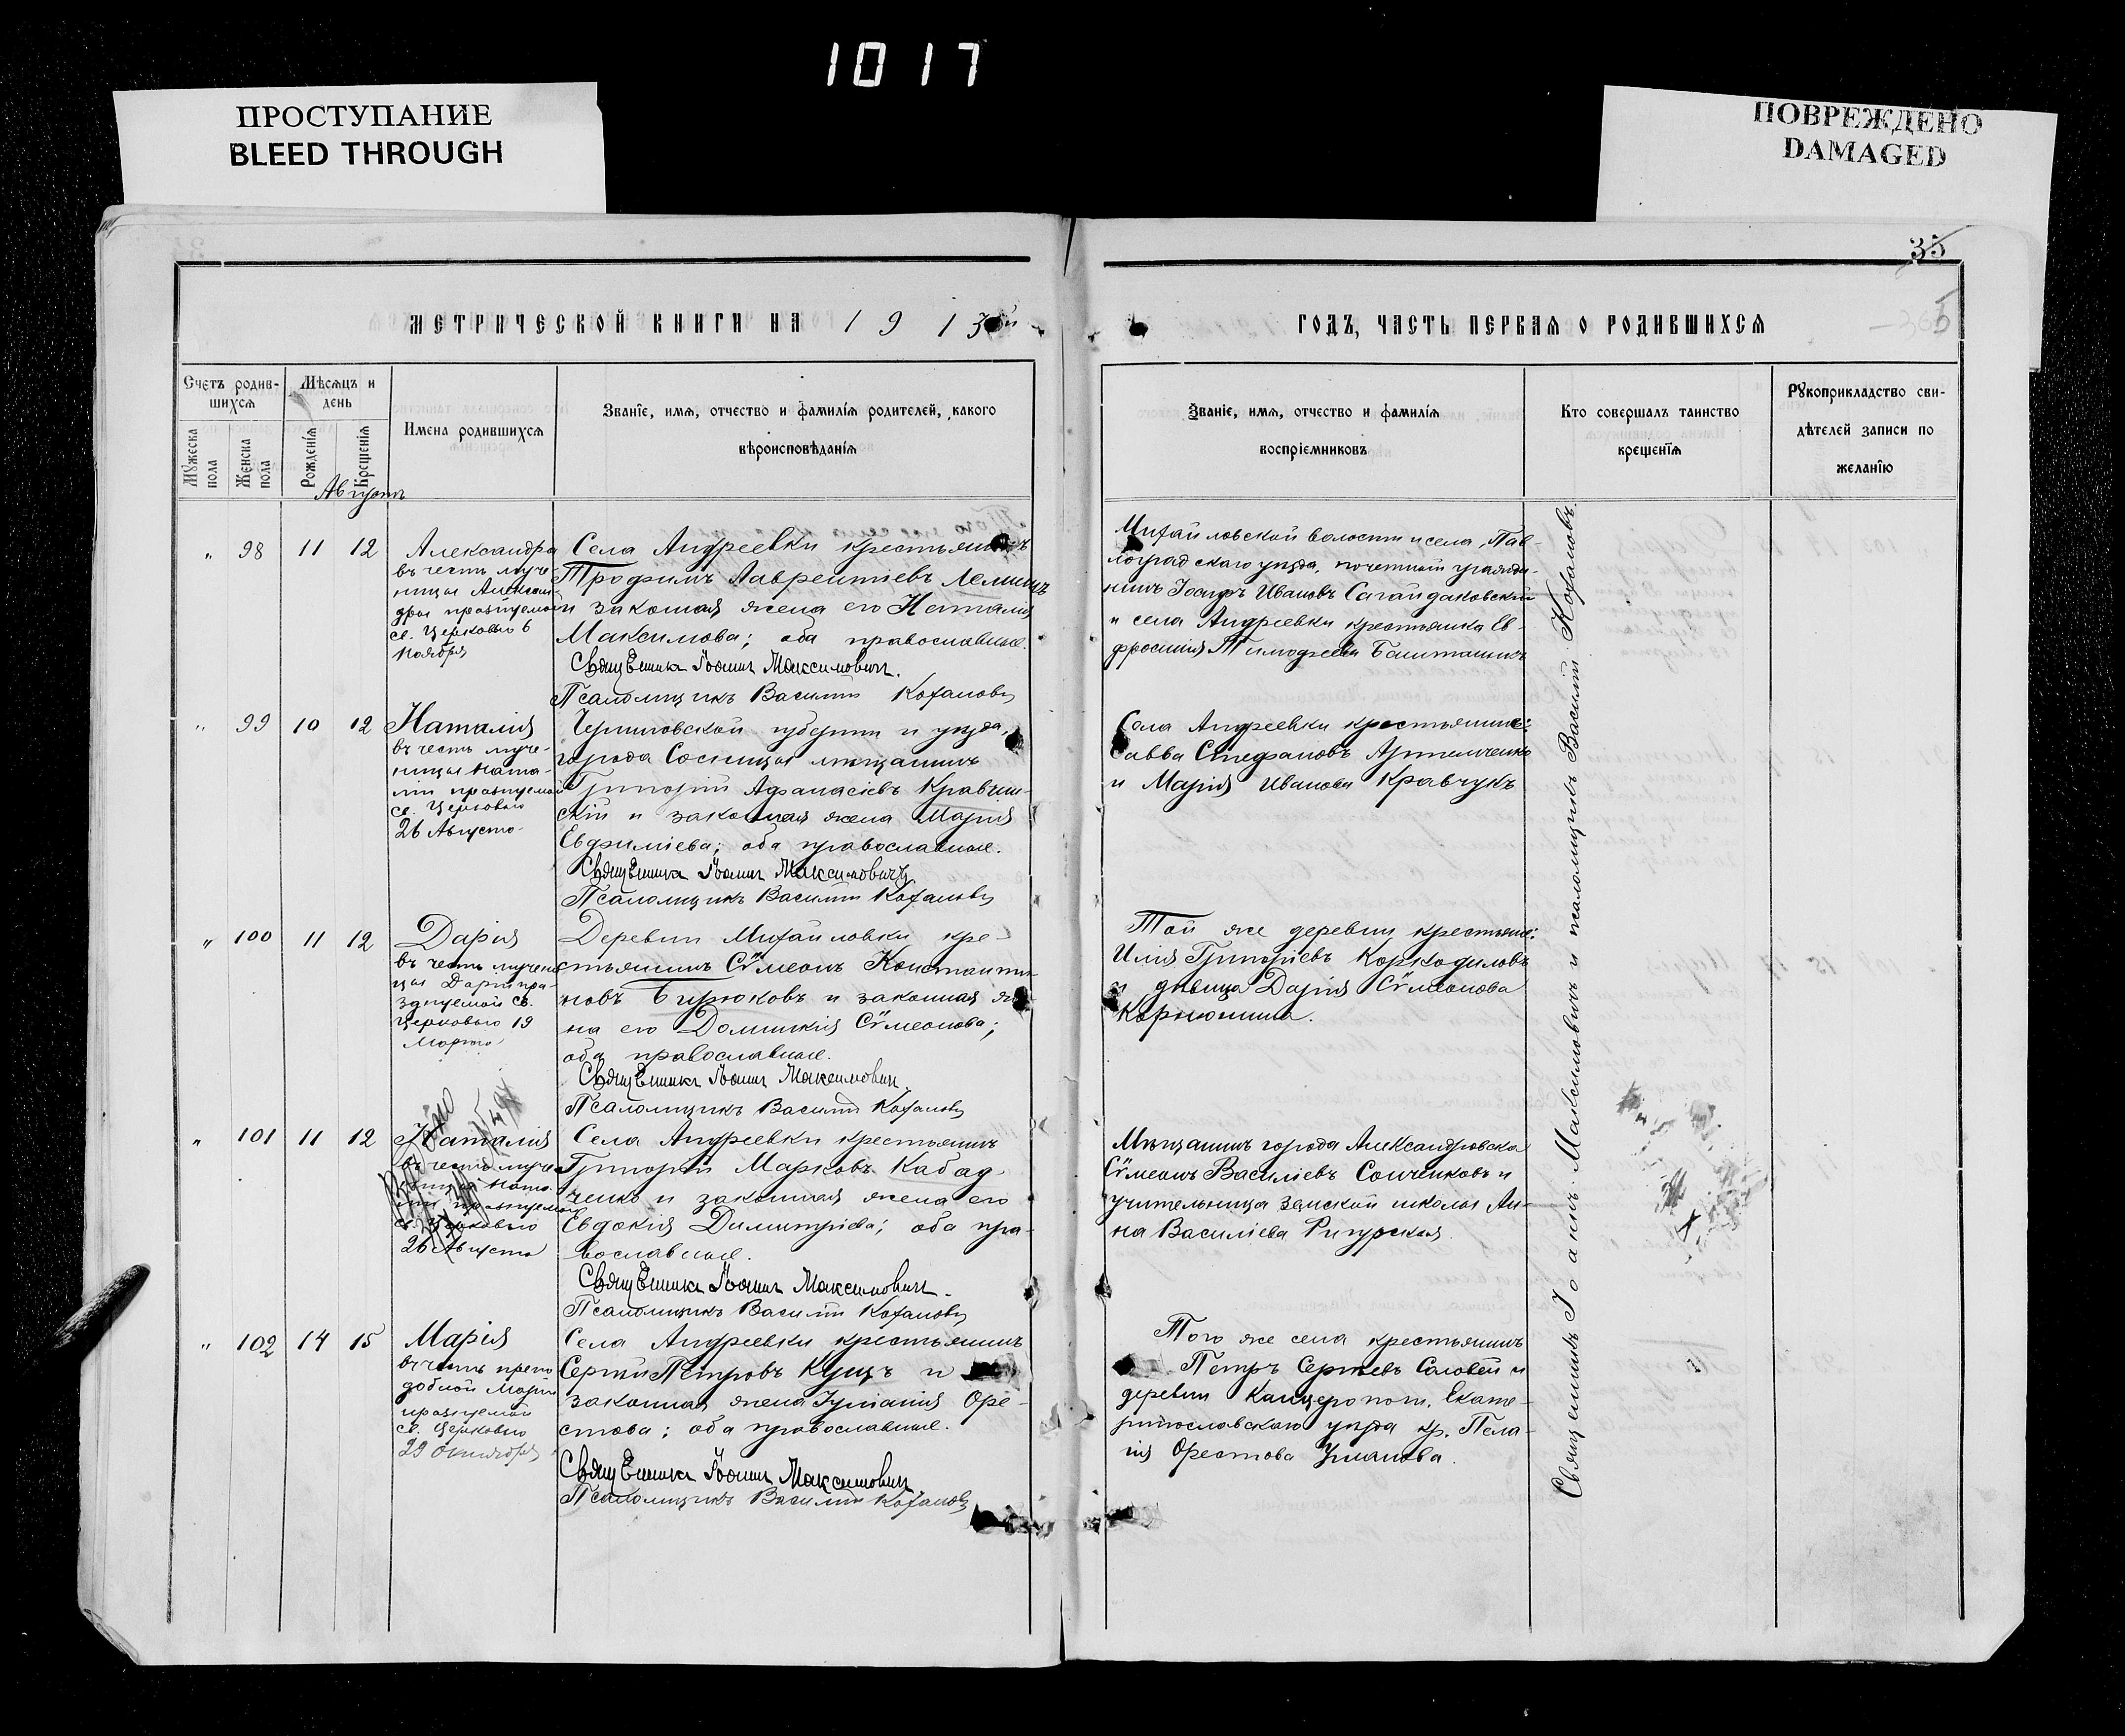 1017
ПРОСТУПАНИЕ
BLEED THROUGH
ПОВРЕЖДЕНО
DAMAGED
35
МЕТРИЧЕСКОЙ КНИГИ НА 1913й
ГОДЪ, ЧАСТЬ ПЕРВАЯ О РОДИВШИХСЯ
Счетъ родив-
шихся
Мужеска пола
Женска пола
Мѣсяцъ и
день
Рожденія
Крещенія
Имена родившихся
Званіе, имя, отчество и фамилія родителей, какого
вѣроисповѣданія
Званіе, имя, отчество и фамилія
воспріемниковъ
Кто совершалъ таинство
крещенія
Рукоприкладство сви-
дѣтелей записи по
желанію
Августъ
" 98 11 12
Александра
въ честь муче-
ницы Алексан-
дры празднуемой
св. Церковью 6
Ноября
Села Андреевки крестьянинъ
Трофимъ Лаврентіевъ Лемишъ
и законная жена его Наталія
Максимова; оба православные.
Священникъ Іоаннъ Максимовичъ.
Псаломщикъ Василій Кохановъ
Михайловской волости и села, Пав-
лоградскаго уѣзда, почетный гражда-
нинъ Іоаннъ Ивановъ Сагайдаковскій
и села Андреевки крестьянка Ев-
фросинія Тимофеева
" 99 10 12
Наталія
въ честь муче-
ницы Ната-
ліи празднуемой
св. Церковью
26 Августа
Черниговской губерніи и уѣзда,
города Сосницы мѣщанинъ
Григорій Афанасіевъ Кравчин-
скій и законная жена Марія
Евфиміева; оба православные.
Священникъ Іоаннъ Максимовичъ
Псаломщикъ Василій Кохановъ
Села Андреевки крестьяне:
Савва Стефановъ Артемченко
и Марія Иванова Кравчукъ
" 100 11 12
Дарія
въ честь мучени-
цы Даріи пра-
зднуемой св.
Церковью 19
Марта
Деревни Михайловки кре-
стьянинъ Сѵмеонъ Константи-
новъ Бирюковъ и законная же-
на его Домникія Сѵмеонова;
оба православные.
Священникъ Іоаннъ Максимовичъ.
Псаломщикъ Василій Кохановъ
Той же деревни крестьяне:
Илія Григоріевъ Коркодиловъ
и дѣвица Дарія Сѵмеонова
Корнюшина.
" 101 11 12
Наталія
въ честь муче-
ницы Ната-
ліи празднуемой
св. Церковью
26 Августа
Села Андреевки крестьянинъ
Григорій Марковъ Кабад-
ченко и законная жена его
Евдокія Димитріева; оба пра-
вославные.
Священникъ Іоаннъ Максимовичъ.
Псаломщикъ Василій Кохановъ
Мѣщанинъ города Александровска
Сѵмеонъ Василіевъ Сонченковъ и
учительница земской школы Ан-
на Василіева
" 102 14 15
Марія
въ честь препо-
добной Маріи
празднуемой
св. Церковью
29 Октября
Села Андреевки крестьянинъ
Сергій Петровъ Куцъ и
законная жена Іуліанія Оре-
стова; оба православные.
Священникъ Іоаннъ Максимовичъ.
Псаломщикъ Василій Кохановъ
Того же села крестьянинъ
Петръ Сергіевъ Соловей и
деревни Канцерополь, Екате-
ринославскаго уѣзда кр. Пела-
гія Орестова Уманова.
Священникъ Іоаннъ Максимовичъ и псаломщикъ Василій Кохановъ.